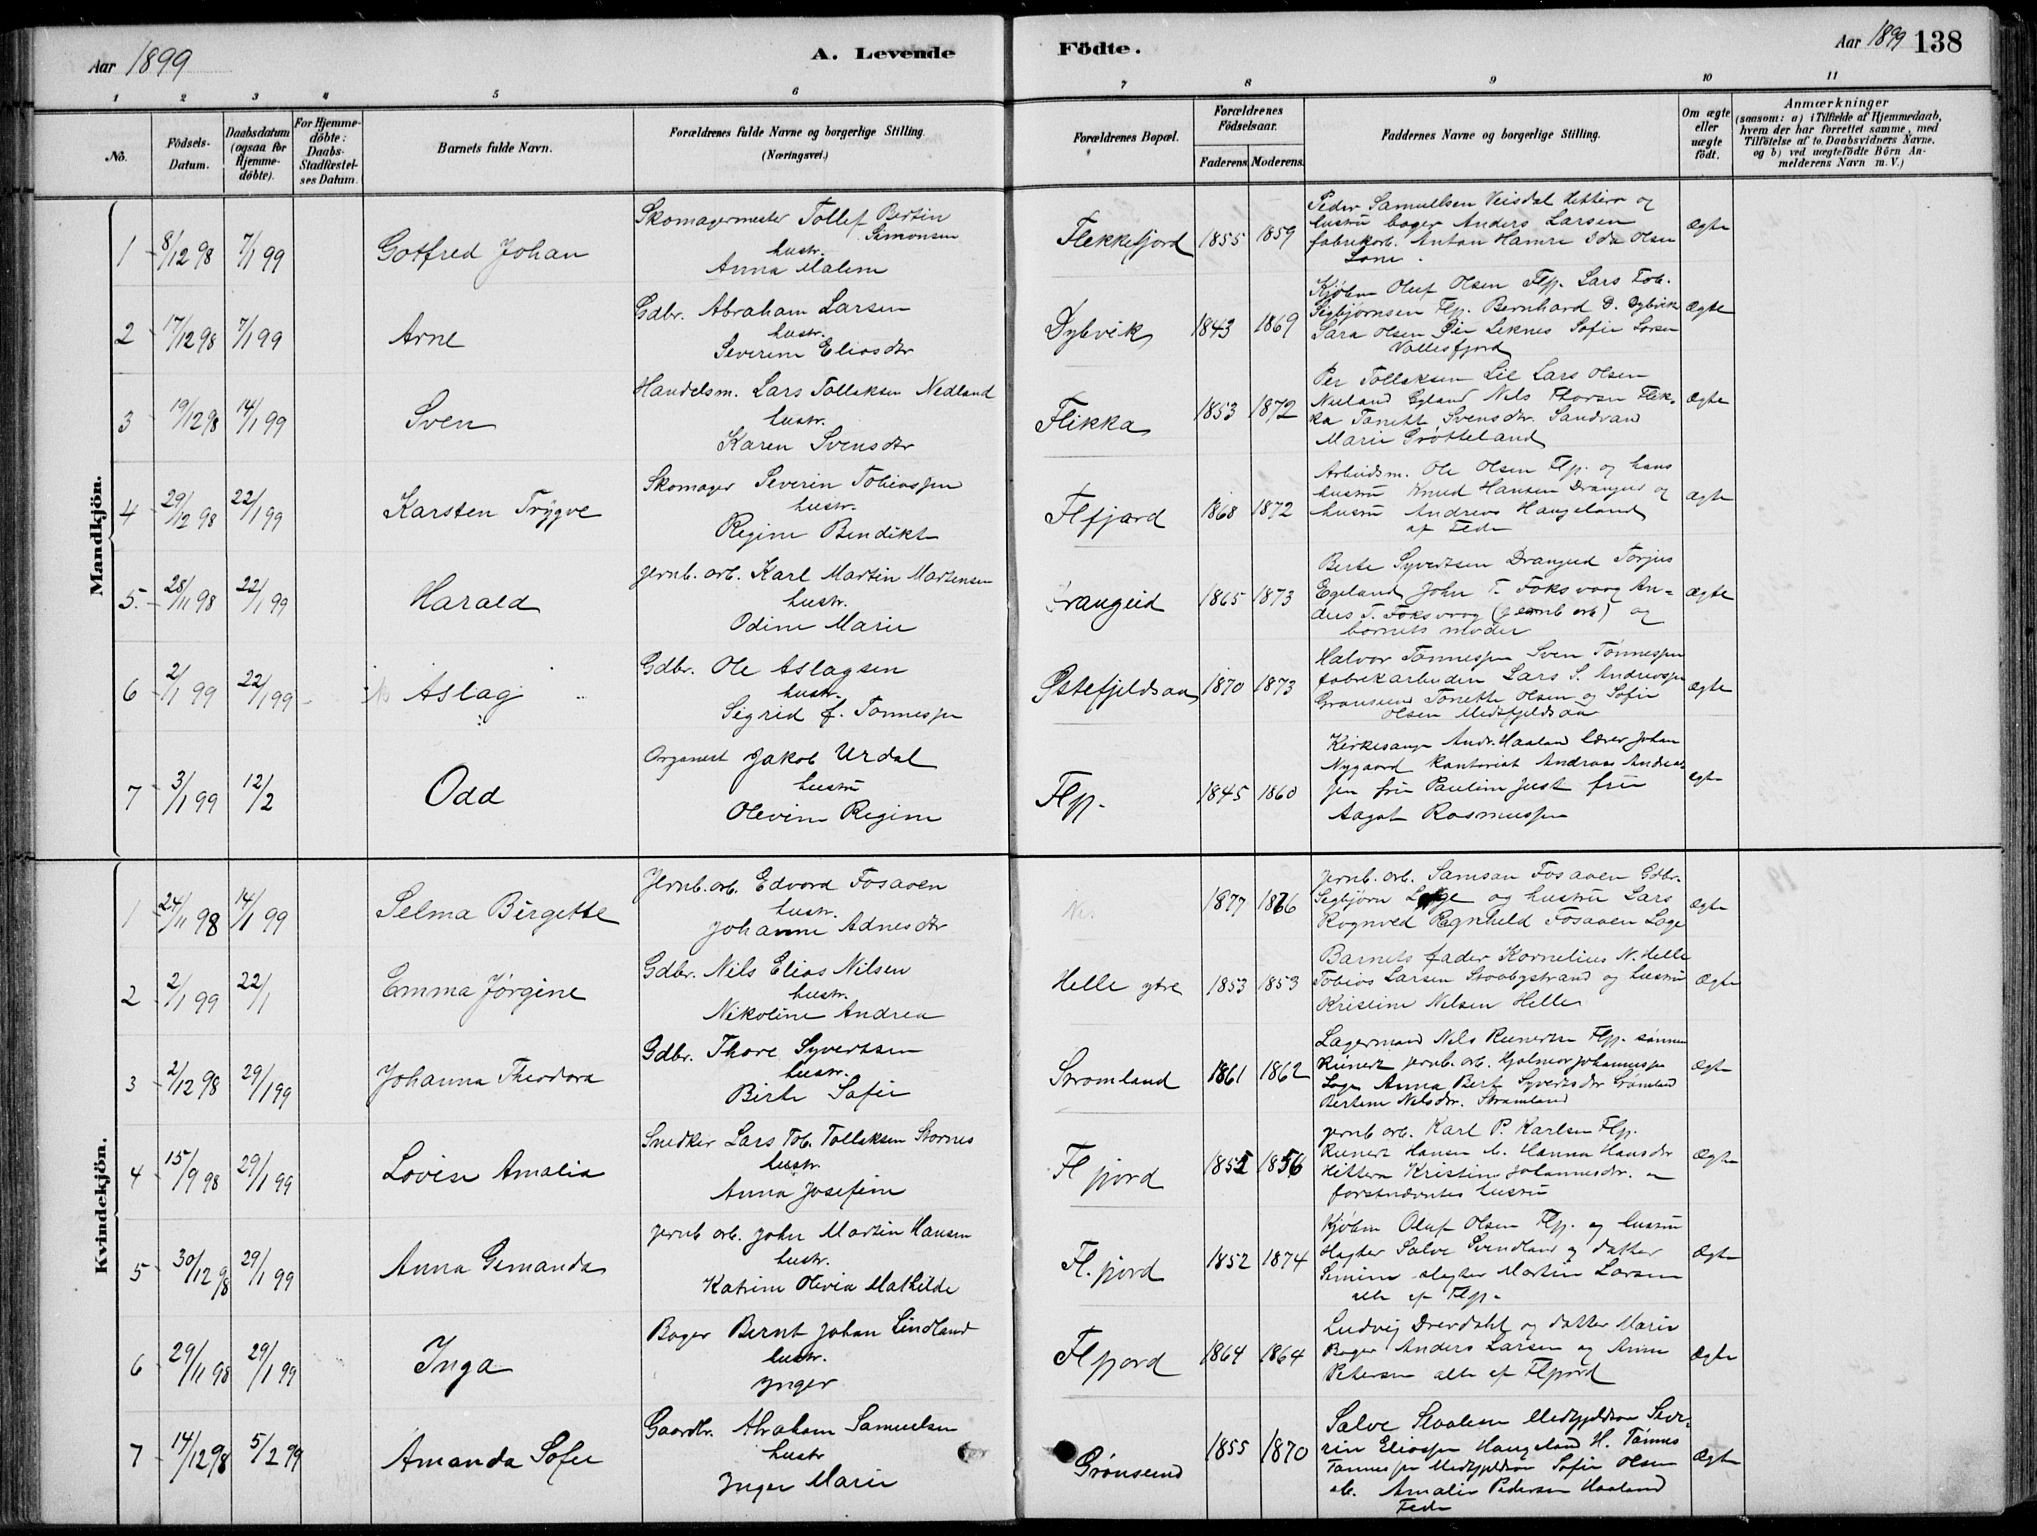 Aar 1899
A. Levende
Födte.
Aar 1899 138
1 2 3 4 5 6 7 8 9 10 11
No.
Födsels-
Datum.
Daabsdatum
(ogsaa for
Hjemme-
döbte).
For Hjemme-
döbte:
Daabs-
Stadfæstel-
ses Datum.
Barnets fulde Navn.
Forældrenes fulde Navne og borgerlige Stilling.
(Næringsvei.)
Forældrenes Bopæl.
Forældrenes
Födselsaar.
Faderens. Moderens.
Faddernes Navne og borgerlige Stilling.
Om ægte
eller
uægte
födt.
Anmærkninger
(saasom: a) i Tilfælde af Hjemmedaab,
hvem der har forrettet samme, med
Tilföielse af to Daabsvidners Navne,
og b) ved uægtefödte Börn An-
melderens Navn m. V.)
Mandkjön.
1 8/12 98 7/1 99 Gotfred Johan
Skomagermester Tollef Bertin
Simonsen
hustr.
Anna Malene
Flekkefjord 1855 1859
Peder Samuelsen Veisdal Hittero og
hustru bager Anders Larsen
fabrikarb. Anton Hamre Ida Olsen
Lone.
Ægte
2 17/12 98 7/1 99 Arne
Gdbr. Abraham Larsen
hustr.
Severine Eliasdtr
Dybvik 1843 1869
Kjøbm Oluf Olsen Flfj. Lars Tob.
Sigbjørnsen Flfj. Bernhard D. Dybvik
Sara Olsen Øie Leknes Sofie Larsen
Vollesfjord
Ægte
3 19/12 98 14/1 99 Sven
Handelsm. Lars Tollaksen Nedland
hustr.
Karen Svensdtr
Flikka 1853 1872
Per Tollaksen Lie Lars Olsen
Nuland Egland Nils Thorsen Flik-
ka Tonette Svensdtr. Sandvand
Marie Grøtteland
Ægte
4 29/12 98 22/1 99 Karsten Trygve
Skomager Severin Tobiassen
hustr.
Regine Bendikte
Flfjord 1868 1872
Arbeidsm. Ole Olsen Flfj. og hans
hustru Knud Hansen Drangeid og
hustru Andreas Haugeland
af Fede
Ægte
5. 28/11 98 22/1 99 Harald
Jernb. arb. Karl Martin Martensen
hustr.
Odine Marie
Drangeid 1865 1873
Berte Syvertsen Drangeid Torjus
Egeland John T. Foksvaag An-
ders T. Foksvaag (jernb arb) og
barnets moder
Ægte
6 2/1 99 22/1 99 Aslag
Gdbr. Ole Aslagsen
hustr.
Sigrid f. Tønnessen
Østefjeldsaa 1870 1873
Halvor Tønnessen Sven Tønnessen
fabrikarbeider Lars S. Andreassen
Grønsund Tonette Olsen og Sofie
Olsen Midtfjeldsaa
Ægte
7 3/1 99 12/2 Odd
Organist Jakob Urdal
hustru
Olevine Regine
Flfj. 1845 1860
Kirkesanger Andr. Haaland lærer Johan
Nygaard kontorist Andreas Andreas-
sen frk Pauline Just frk
Aagot Rasmussen
Ægte
Kvindekjön.
1 24/11 98 14/1 99 Selma Birgette
Jernb. arb. Edvard Fosaaen
hustr.
Johanne Adnesdtr
1877 1876
Jernb. arb. Samson Fosaaen Gdbr.
Sigbjørn Loge og hustru Lars
Rognved Ragnhild Fosaaen Loge
Ægte
2 2/1 99 22/1 Emma Jørgine
Gdbr. Nils Elias Nilsen
hustr.
Nikoline Andrea
Helle ytre 1853 1853
Barnets fader Kornelius N. Helle
Tobias Larsen Stoabystrand og hustru
Kristine Nilsen Helle
Ægte
3 2/12 98 29/1 99 Johanna Theodora
Gdbr. Thore Syvertsen
hustr.
Birte Sofie
Strømland 1861 1862
Lagermand Nils Reinertsen Flfj. sønnen
Reinert jernb. arb. Hjalmar Johannessen
Loge Anna Bert. Syvertsdtr Strømland
Bertine Nilsdtr. Strømland
Ægte
4 15/9 98 29/1 99 Lovise Amalia
Snedker Lars Tob. Tollaksen Stornes
hustr.
Anna Josefine
Flfjord 1855 1856
jernb arb. Karl P. Karlsen Flfj.
Reinert Hansen Hanna Hansdtr
Hittero Kristine Johannesdtr.
forstnævntes hustru
Ægte
5 30/12 98 29/1 99 Anna Gemanda
jernb arb. John Martin Hansen
hustr.
Katrine Olivia Mathilde
Fl.fjord 1852 1874
Kjøbm Oluf Olsen Flfj. og hustru
Slagter Salve Svendland og datter
Semine slagter Martin Larsen
alle af Flfj.
Ægte
6 29/11 98 29/1 99 Inga
Bager Bernt Johan Lindland
hustr.
Inger
Flfjord 1864 1864
Ludvig Drevdahl og datter Marie
Bager Anders Larsen og Anne
Petersen alle af Flfjord
Ægte
7 14/12 98 5/2 99 Amanda Sofie
Gaardbr. Abraham Samuelsen
hustr
Inger Marie
Grønsund 1855 1870
Salve Staalesen Midtfjeldsaa Seve-
rin Eliassen Haugeland H. Tønnes
Tønnessen Midtfjeldsaa Sofie Olsen
Amalie Pedersen Haaland
Fede
Ægte